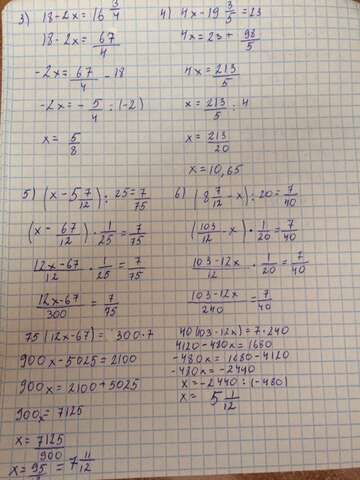 3) 18-2x = 16 3/4
18-2x = 67/4
-2x = 67/4 - 18
-2x = - 5/4 : (-2)
x = 5/8
4) 4x-19 3/5 = 23
4x = 23 + 98/5
4x = 213/5
x = 213/5 : 4
x = 213/20
x = 10,65
5) (x - 5 7/12) : 25 = 7/75
(x - 67/12) · 1/25 = 7/75
12x-67/12 · 1/25 = 7/75
12x-67/300 = 7/75
75(12x-67) = 300·7
900x - 5025 = 2100
900x = 2100 + 5025
900x = 7125
x = 7125/900
x = 95/ = 7 11/12
6) (8 7/12 - x) : 20 = 7/40
(103/12 - x) · 1/20 = 7/40
103-12x/12 · 1/20 = 7/40
103-12x/240 = 7/40
40(103-12x) = 7·240
4120-480x = 1680
-480x = 1680-4120
-480x = -2440
x = -2440 : (-480)
x = 5 1/12